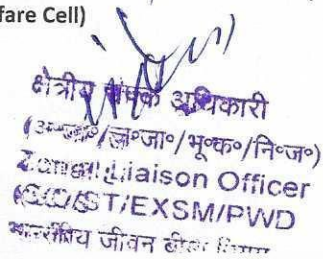 fare Cell)
क्षेत्रीय संपर्क अधिकारी
(अ॰जा॰/ज॰जा॰/भू॰क॰/नि॰ज॰)
Zonal Liaison Officer
(SC/ST/EXSM/PWD
भारतीय जीवन बीमा निगम